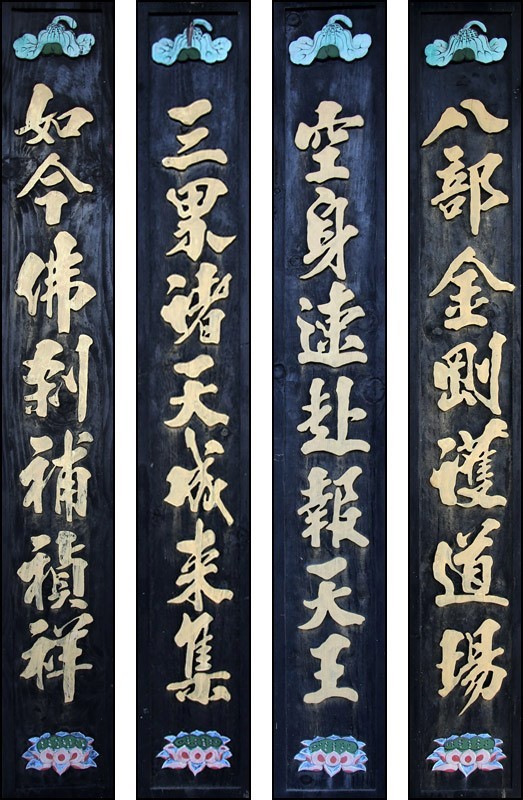 八部金剛護道場
空身速赴報天王
三界諸天咸来集
如今佛刹補禎祥